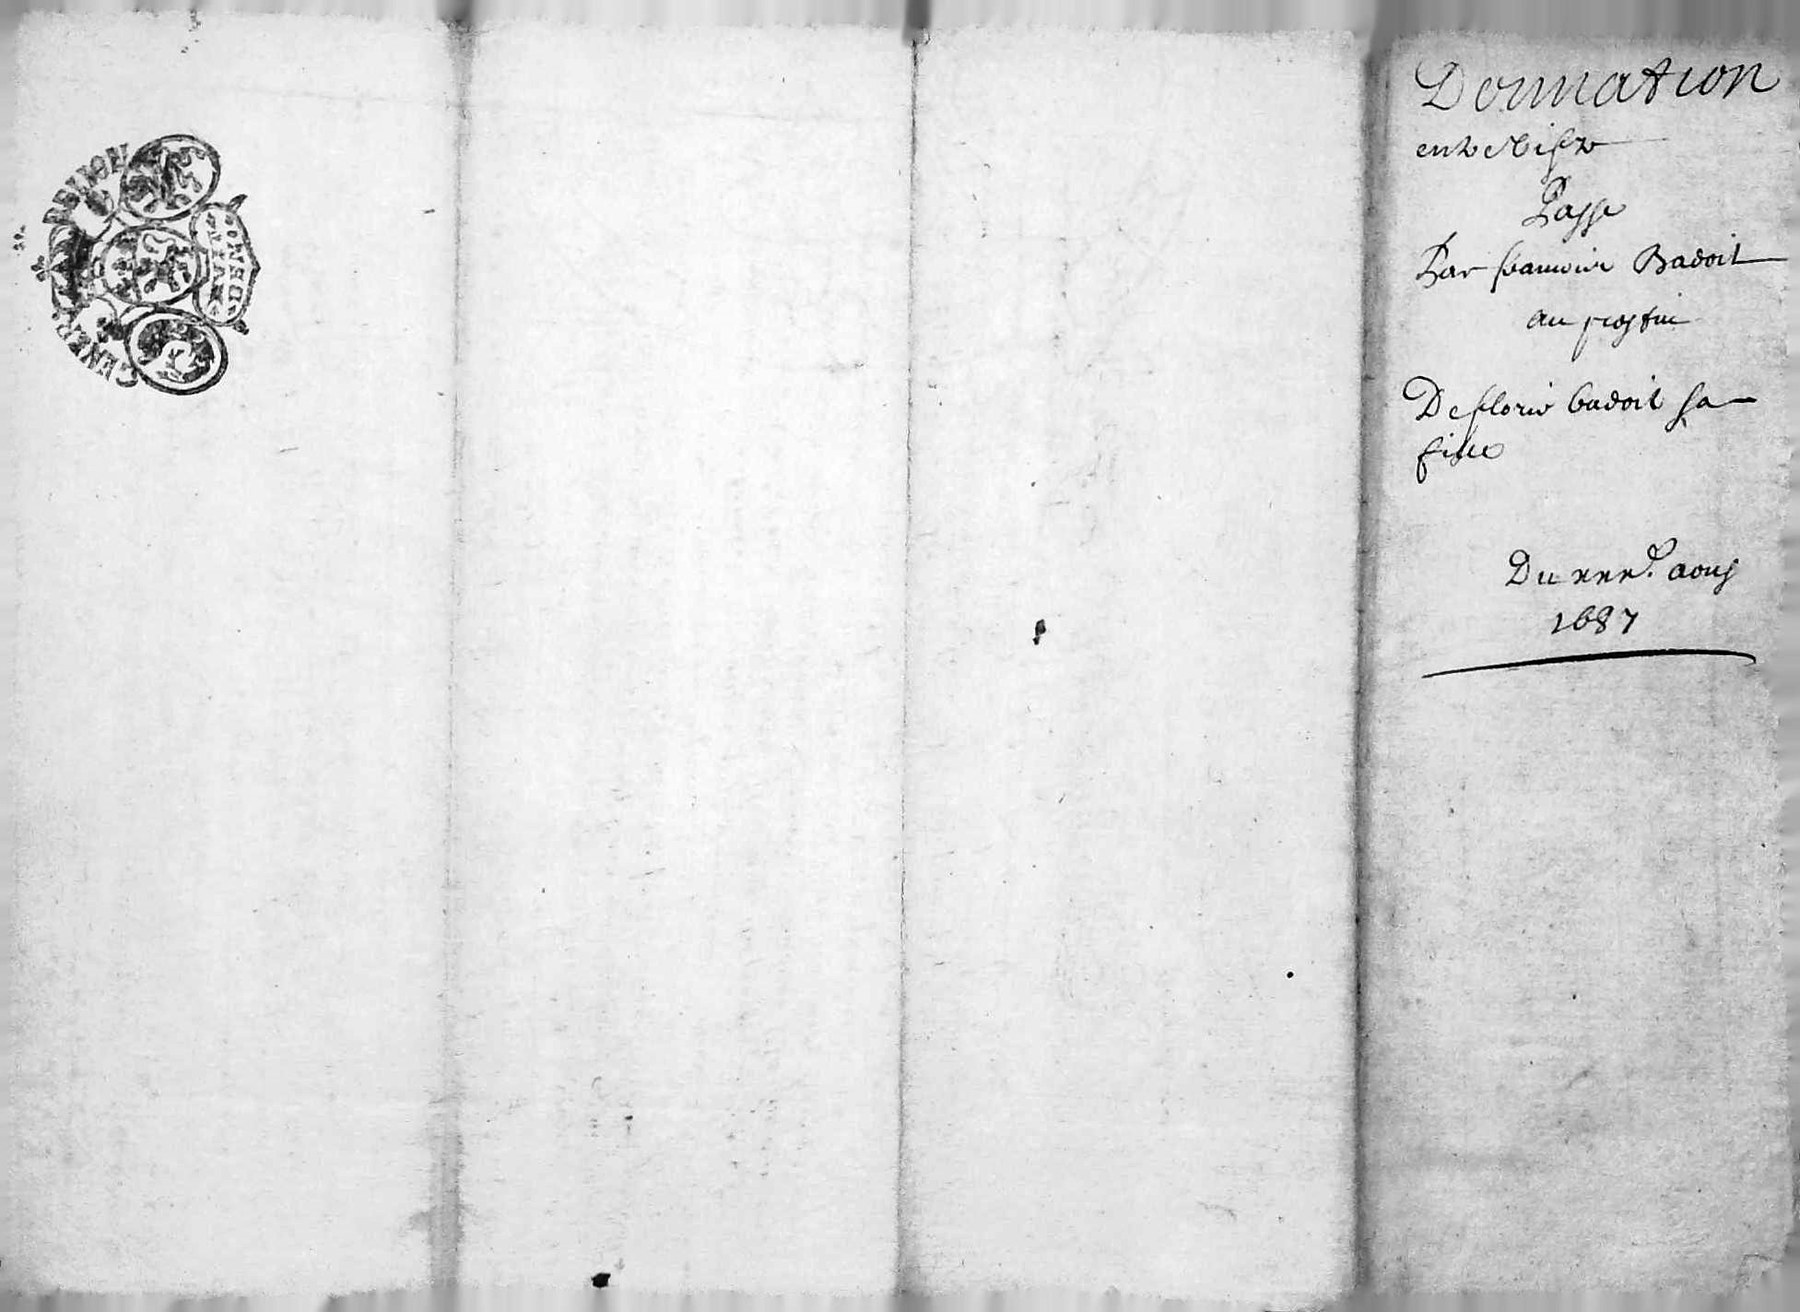 GENER DE LION
CONTROL
Donnation
entre Vifz
Passe
Par francois Badoit
au proffit
De floris badoit sa
fille
Du xxx.e aoust
1687